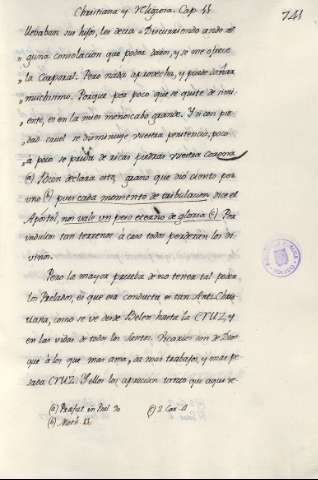 Christiana y Religiosa. Cap. 44.
741
llevaban sus hijos, les decia = Discurriendo ando al
guna consolacion que poder daros, y se me ofrece
la Corporal. Pero nada aprovecha, y puede dañar
muchisimo. Porque por poco que se quite de
ente, es en la mies menoscabo grande. Y si con pie
dad cruel se disminuye vuestra penitencia, poco
à poco se priva de ricas piedras vuestra Corona
(a) declara este grano que dió ciento por
uno (b) pues cada momento de tribulacion dice el
Apóstol, nos vale un peso eterno de gloria (c) Por
tan terrenos à caso todos perderian los di
vinos.
Pero la mayor prueba de no tener tal poder
los Prelados, es que esa conducta es tan Anti-Chris
tiana, como se ve desde Belen hasta la CRUZ, y
en las vidas de todos los Santos. son de Dios
que à los que mas ama, da mas trabajos, y mas pe
sada CRUZ. Fuller los aparecian terreo que aqui se
(a) Præfat. in Psal. 30
(b) Math. 13
(c) 2. Cor. 4